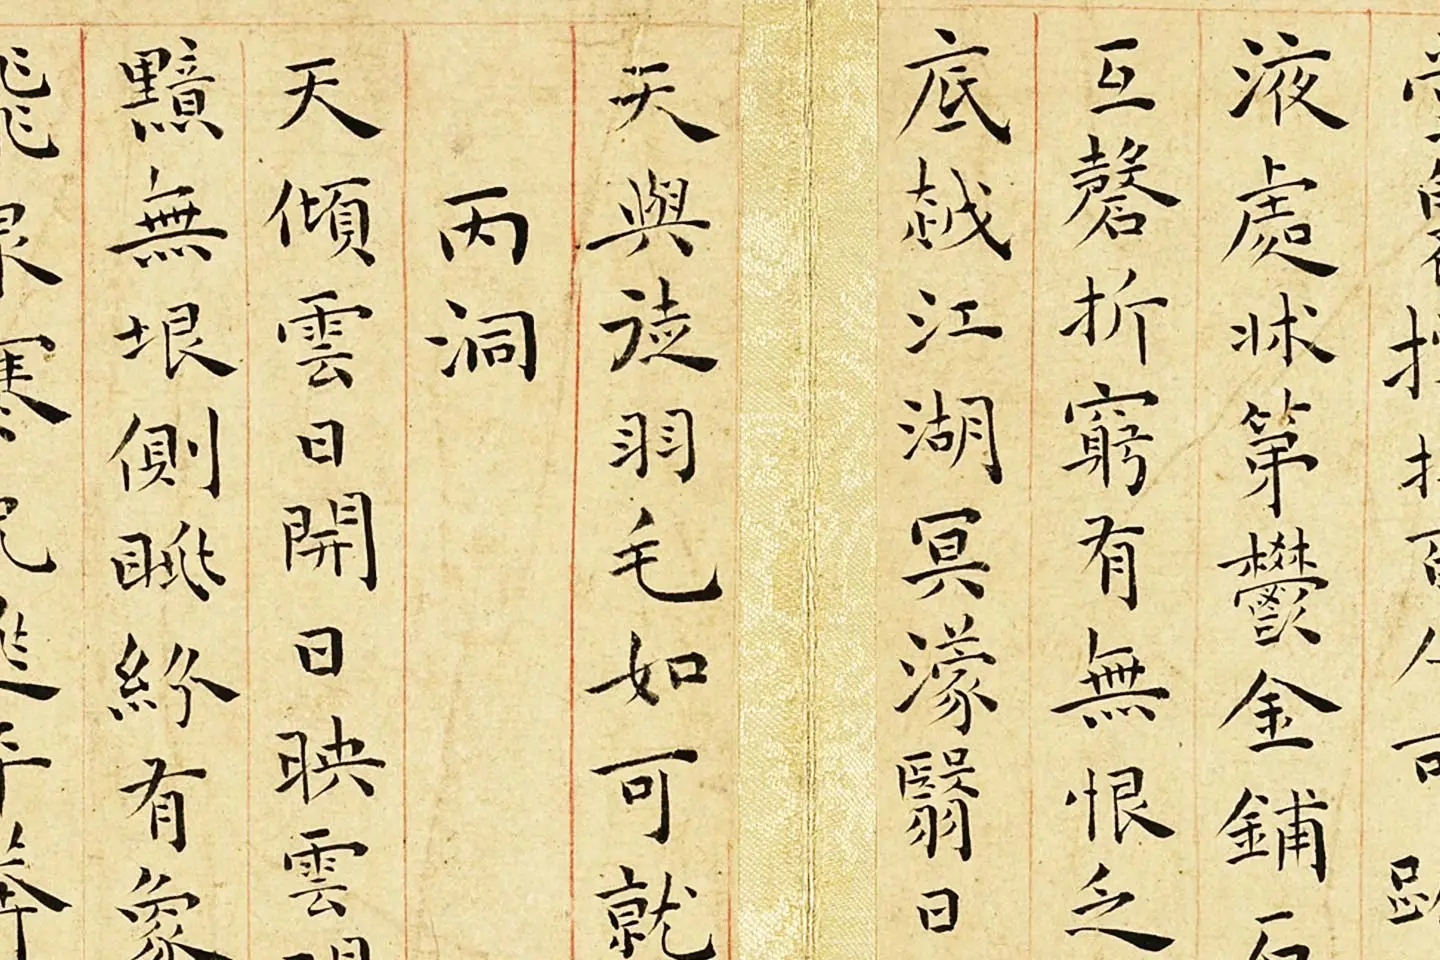 液處第鬱金鋪
互磬折窮有無恨乏
底越江湖冥濛翳日
天與徒羽毛如可就
丙洞
天傾雲日開日映雲
黯無垠側眺紛有象
寒